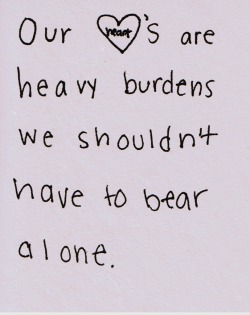 Our heart's are
heavy burdens
we shouldn't
have to bear
alone.